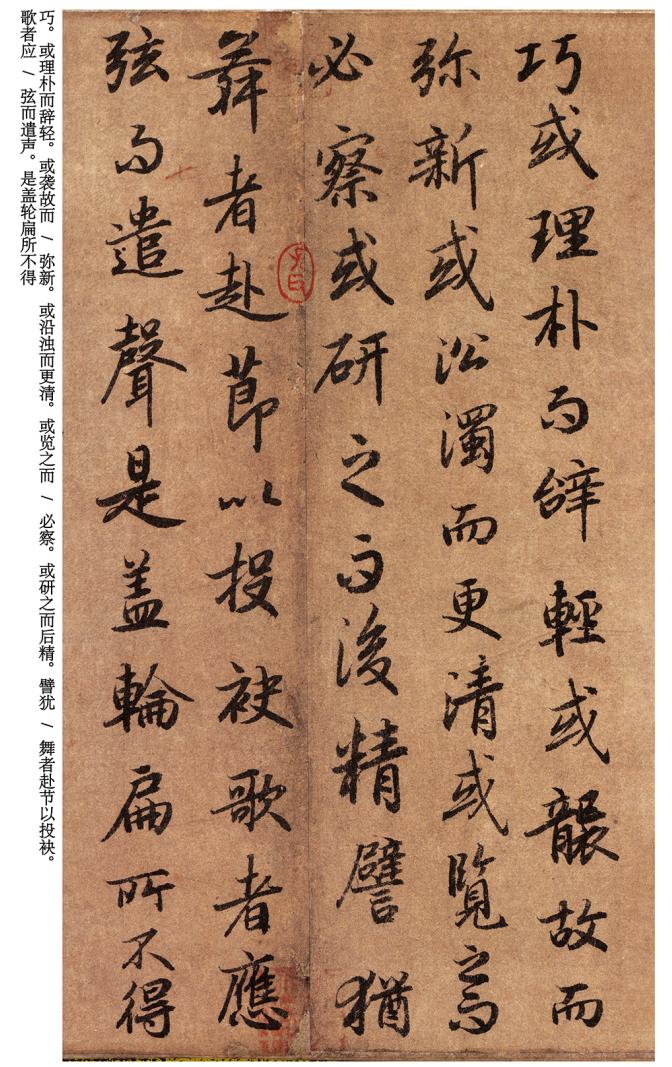 巧或理朴而辝輕或襲故而
弥新或沿濁而更清或覽之而
必察或研之而後精譬猶
舞者赴莭以投袂歌者應
弦而遣聲是盖輪扁所不得
巧。或理朴而辞轻。或袭故而 / 弥新。或沿浊而更清。或览之而 / 必察。或研之而后精。譬犹 / 舞者赴节以投袂。
歌者应 / 弦而遣声。是盖轮扁所不得